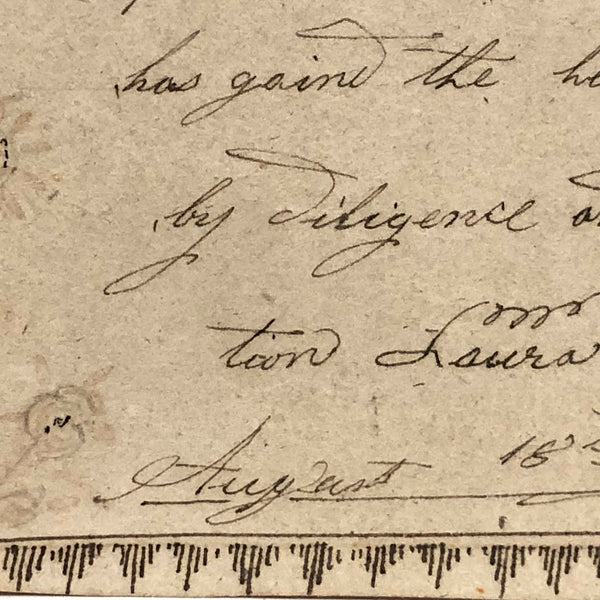 has gaind the
by diligence
tion Laura
August 18